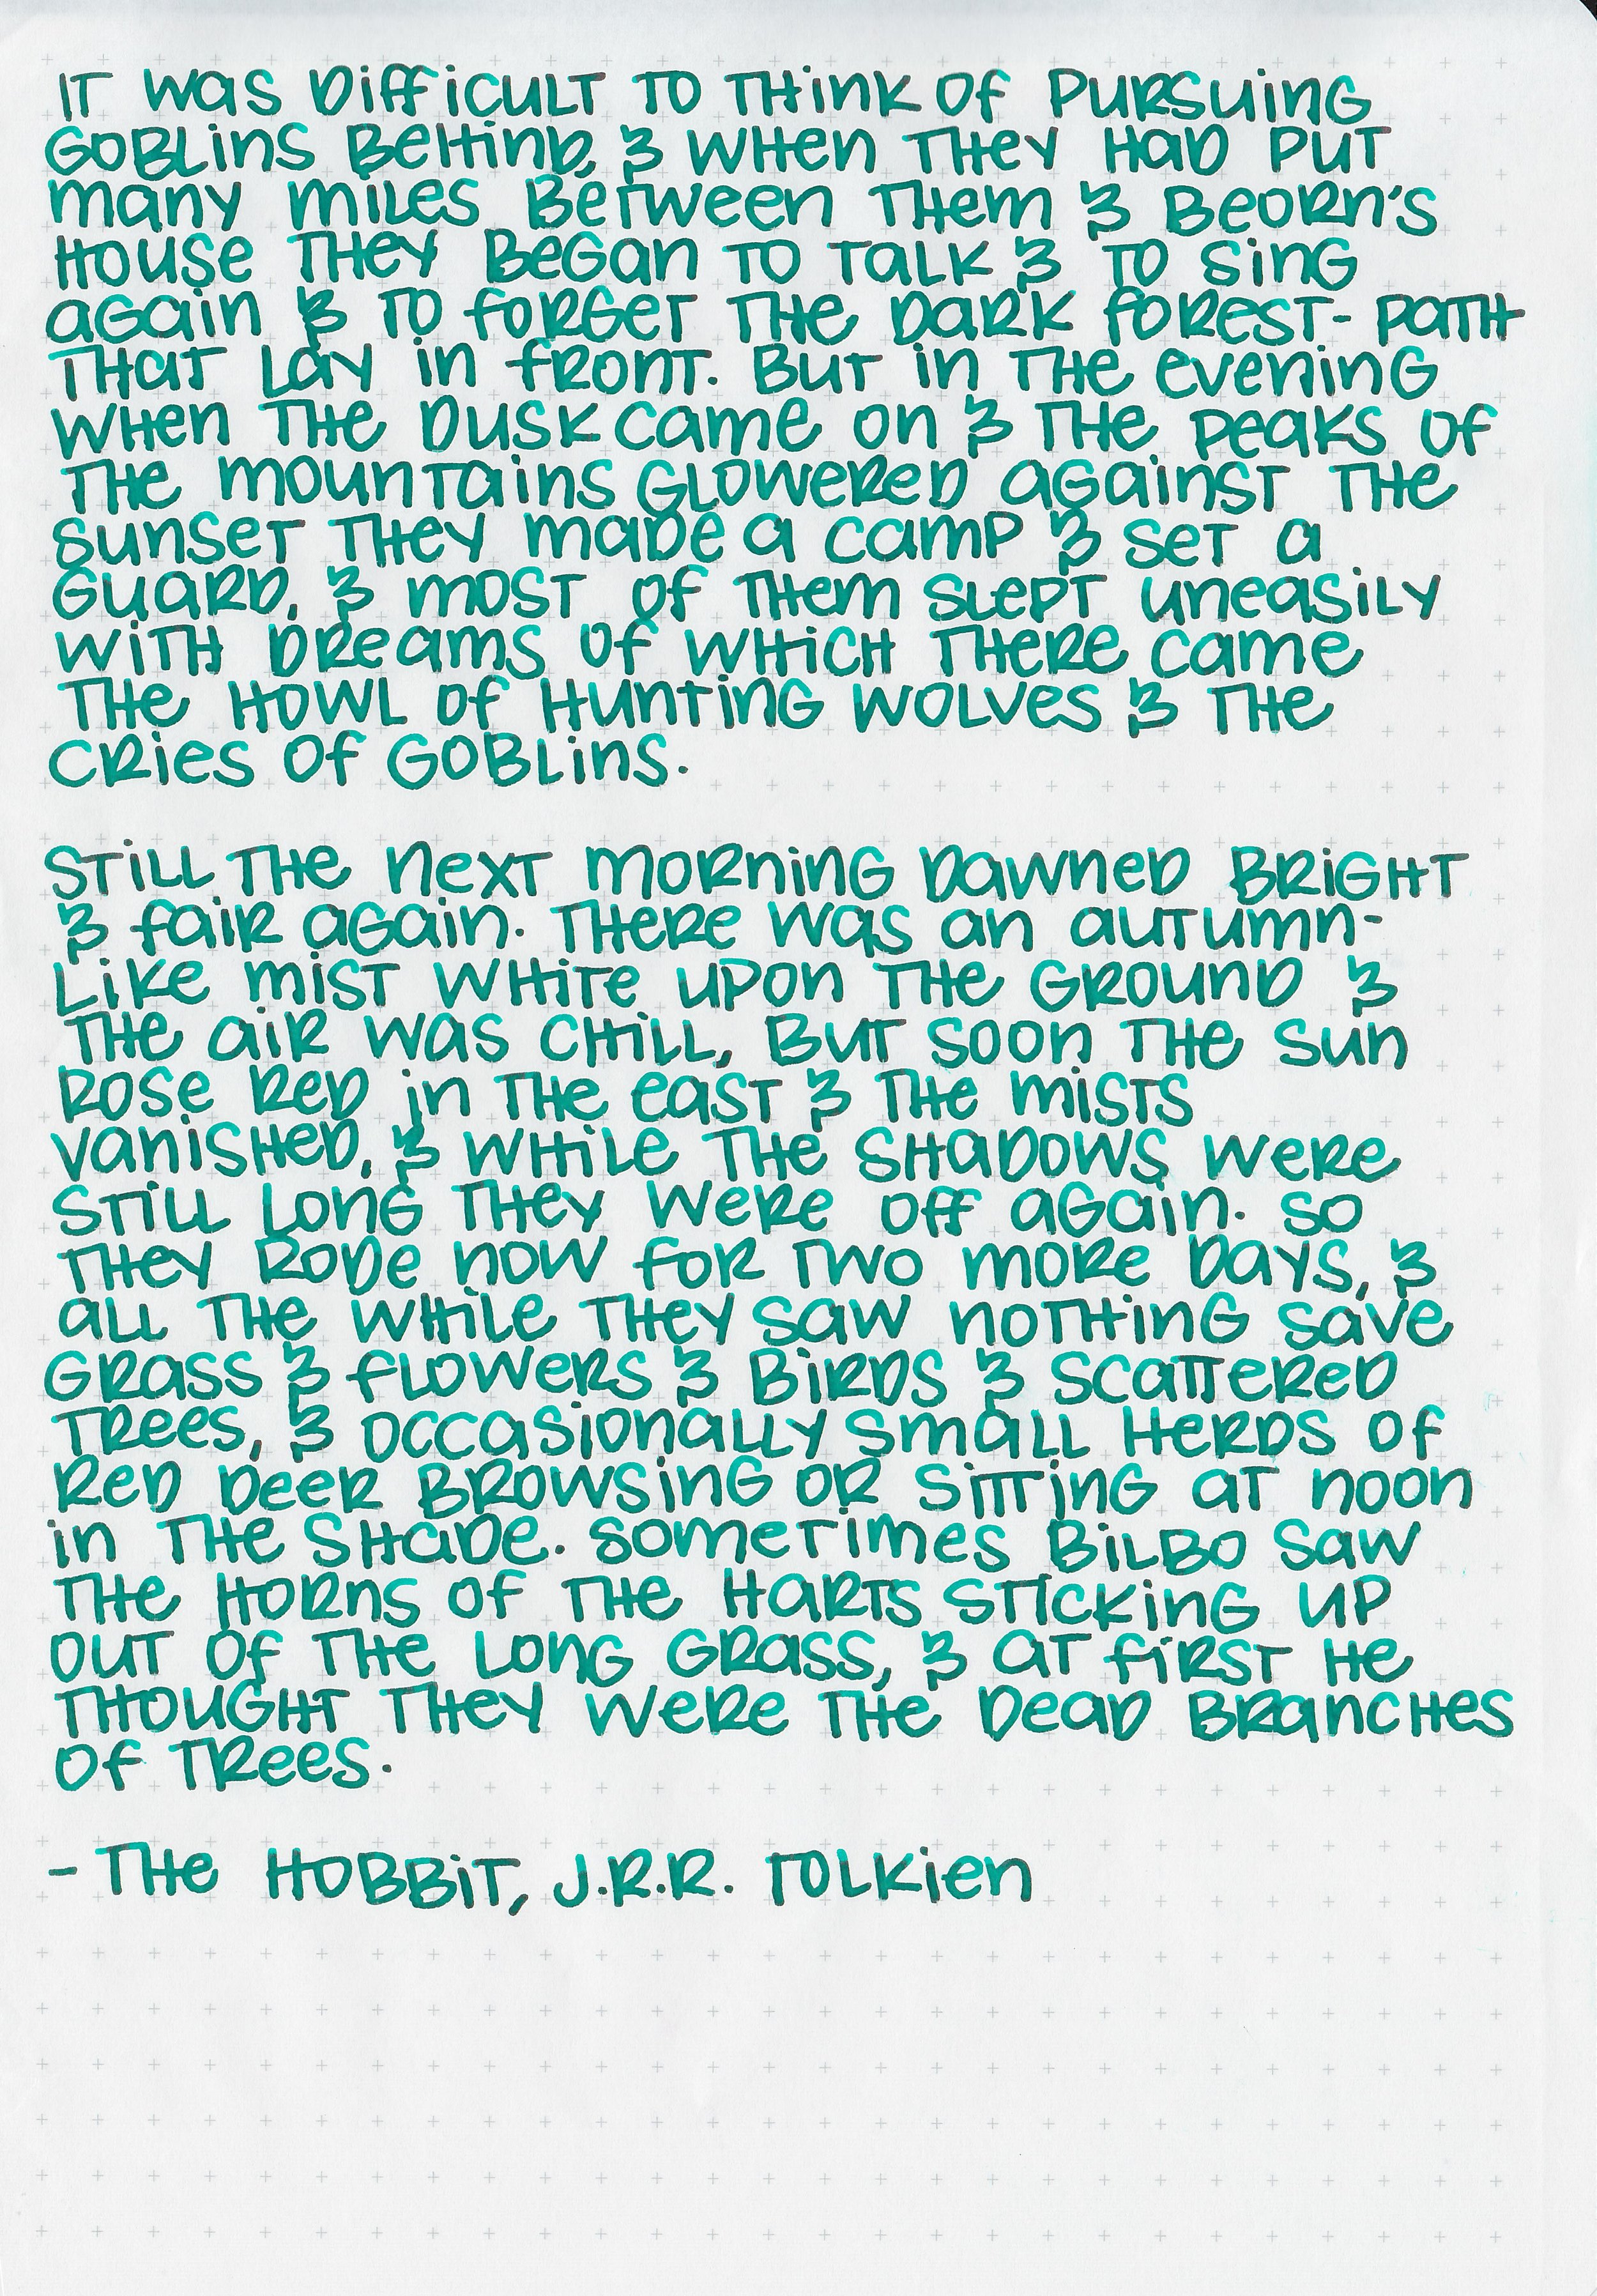 IT WAS DIFFICULT TO THINK OF PURSUING
GOBLINS BEHIND, & WHEN THEY HAD PUT
MANY MILES BETWEEN THEM & BEORN'S
HOUSE THEY BEGAN TO TALK & TO SING
AGAIN & TO FORGET THE DARK FOREST-PATH
THAT LAY IN FRONT. BUT IN THE EVENING
WHEN THE DUSK CAME ON & THE PEAKS OF
THE MOUNTAINS GLOWERED AGAINST THE
SUNSET THEY MADE A CAMP & SET A
GUARD, & MOST OF THEM SLEPT UNEASILY
WITH DREAMS OF WHICH THERE CAME
THE HOWL OF HUNTING WOLVES & THE
CRIES OF GOBLINS.

STILL THE NEXT MORNING DAWNED BRIGHT
& FAIR AGAIN. THERE WAS AN AUTUMN-
LIKE MIST WHITE UPON THE GROUND &
THE AIR WAS CHILL, BUT SOON THE SUN
ROSE RED IN THE EAST & THE MISTS
VANISHED, & WHILE THE SHADOWS WERE
STILL LONG THEY WERE OFF AGAIN. SO
THEY RODE NOW FOR TWO MORE DAYS, &
ALL THE WHILE THEY SAW NOTHING SAVE
GRASS & FLOWERS & BIRDS & SCATTERED
TREES, & OCCASIONALLY SMALL HERDS OF
RED DEER BROWSING OR SITTING AT NOON
IN THE SHADE. SOMETIMES BILBO SAW
THE HORNS OF THE HARTS STICKING UP
OUT OF THE LONG GRASS, & AT FIRST HE
THOUGHT THEY WERE THE DEAD BRANCHES
OF TREES.

- THE HOBBIT, J.R.R. TOLKIEN